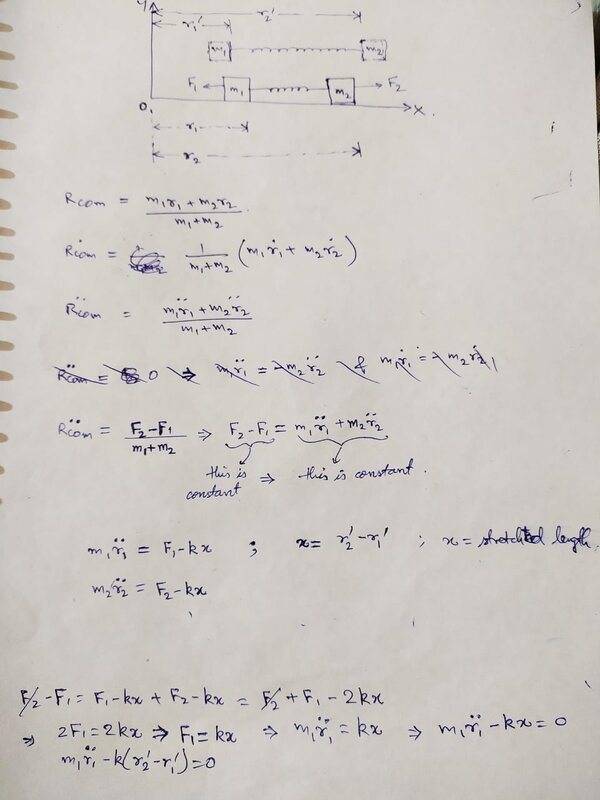 Y
r₂'
r₁'
m₁ m₂
F₁ m₁ m₂ F₂
O X
r₁
r₂
Rcom = (m₁r₁ + m₂r₂)/(m₁+m₂)
Ṙcom = 1/(m₁+m₂) (m₁ṙ₁ + m₂ṙ₂)
R̈com = (m₁r̈₁ + m₂r̈₂)/(m₁+m₂)
R̈com = 0 ⇒ m₁r̈₁ = -m₂r̈₂ & m₁ṙ₁ = -m₂ṙ₂
R̈com = (F₂-F₁)/(m₁+m₂) ⇒ F₂-F₁ = m₁r̈₁ + m₂r̈₂
this is constant ⇒ this is constant.
m₁r̈₁ = F₁-kx ; x = r₂'-r₁' ; x = stretched length
m₂r̈₂ = F₂-kx
F₂-F₁ = F₁-kx + F₂-kx = F₂+F₁-2kx
⇒ 2F₁=2kx ⇒ F₁=kx ⇒ m₁r̈₁ = kx ⇒ m₁r̈₁-kx=0
m₁r̈₁-k(r₂'-r₁')=0